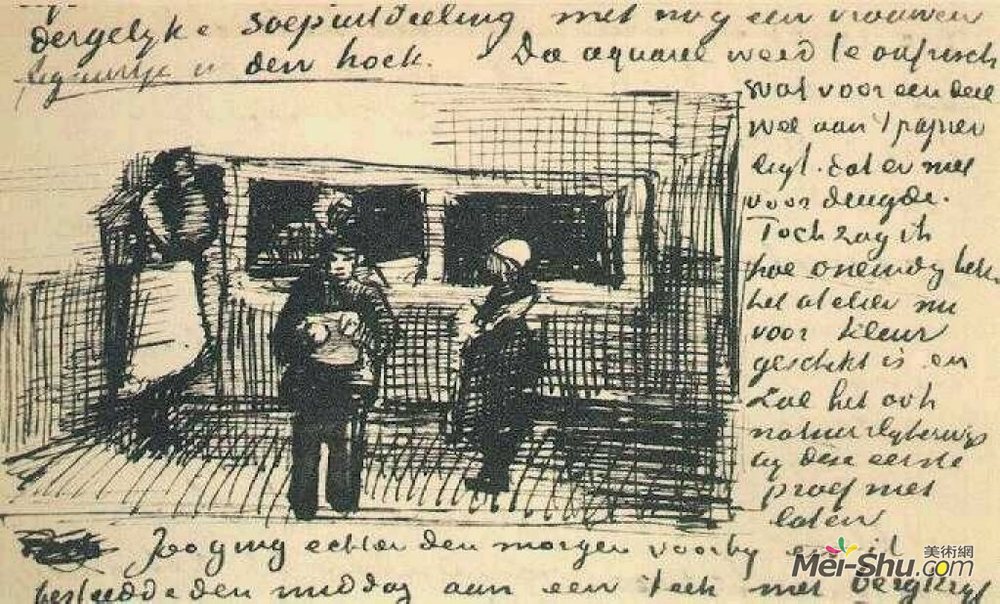 dergelyke soepuitdeeling met nog een vrouwen
figuurtje in den hoek. Die aquarel werd te onfrisch
wat voor een deel
wel aan 't papier
ligt. dat er niet
voor deugde.
Toch zag ik
hoe oneindig beter
het atelier nu
voor kleur
geschikt is en
zal het ook
natuurlykerwys
by deze eerste
proef niet
laten
Zoo ging echter den morgen voorby en ik
besteedde den middag aan een
美術網
Mei-Shu.com